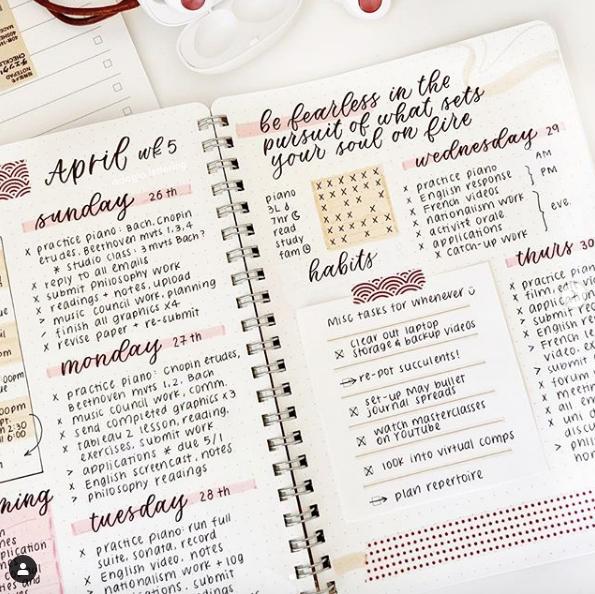 April wk 5
sunday 26th
x practice piano: Bach, Chopin
etudes, Beethoven mvts 1, 3, 4
* studio class: 3 mvts Bach?
x reply to all emails
x submit philosophy work
x readings + notes, upload
> music council work, planning
> finish all graphics x4
x revise paper + re-submit
monday 27th
x practice piano: Chopin etudes,
Beethoven mvts 1, 2, Bach
x music council work, comm.
x send completed graphics x3
x tableau 2 lesson, reading,
exercises, submit work
> applications * due 5/1
x English screencast, notes
> philosophy readings
tuesday 28th
x practice piano: run full
suite, sonata, record
x English video, notes
x nationalism work + log
applications, submit
be fearless in the
pursuit of what sets
your soul on fire
piano
3L
7hr
read
study
fam
habits
wednesday 29
x practice piano
x English response
x French videos
x nationalism work
x activité orale
x applications
x catch-up work
AM
PM
eve.
Misc tasks for whenever
x clear out laptop
storage & backup videos
→ re-pot succulents!
x set-up May bullet
journal spreads
x watch masterclasses
on YouTube
x look into virtual comps
→ plan repertoire
thurs 30
x practice pian
x film, e
x
x submit re
x English re
> French le
video, ex
> submit
x forum
x meet
x all em
x uni
discu
> phil
hor